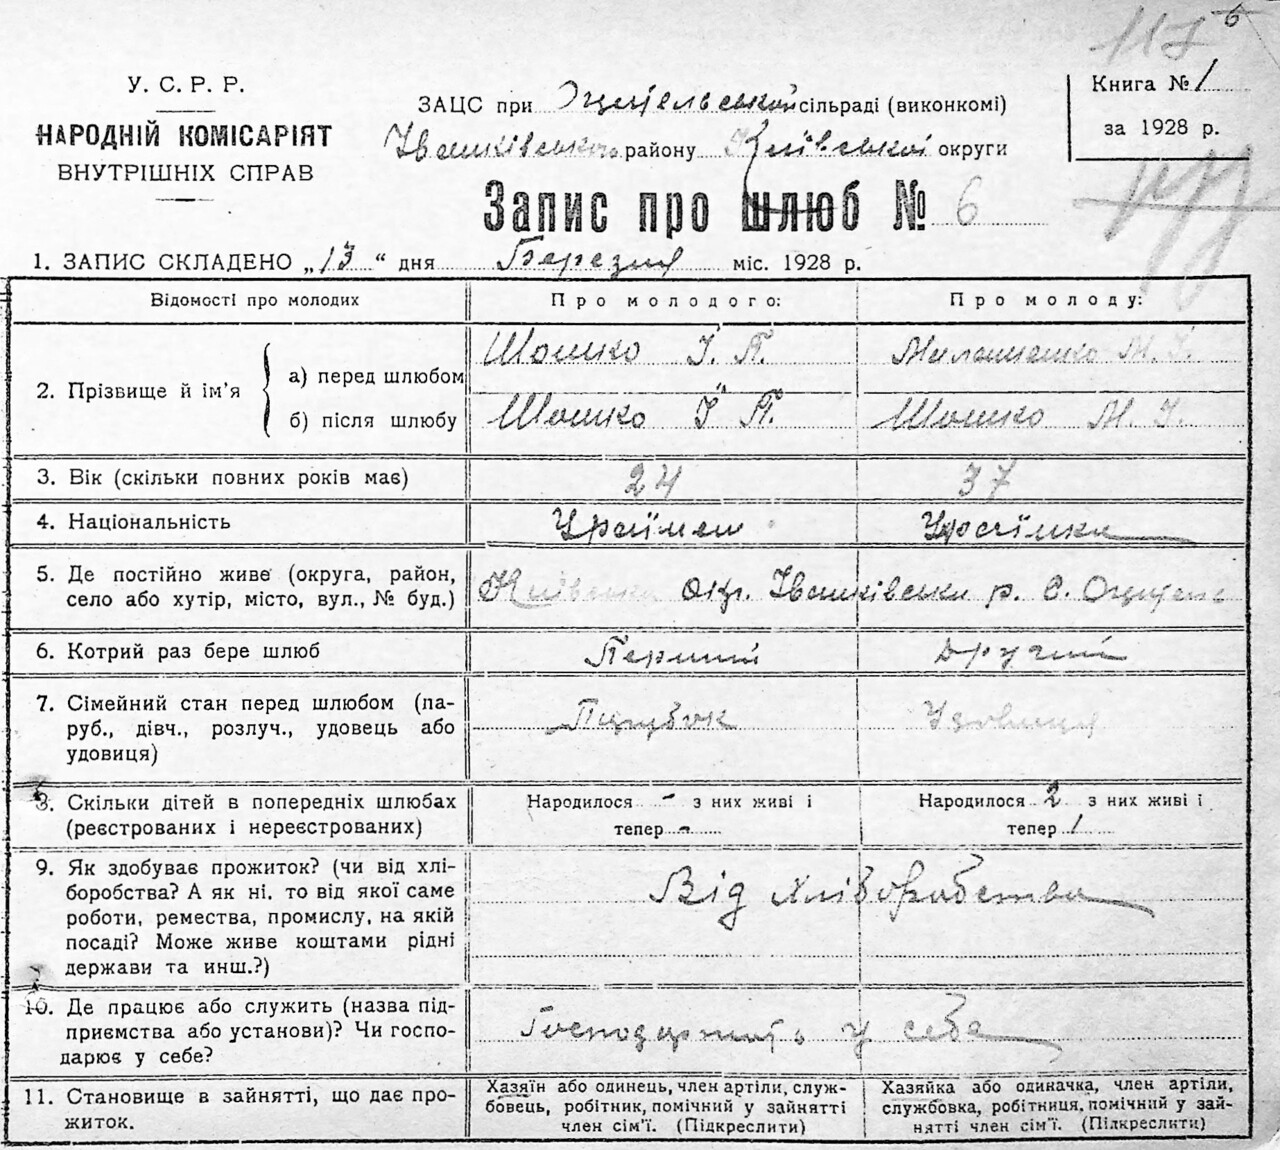 117 6
У. С. Р. Р.
НАРОДНІЙ КОМІСАРІЯТ
ВНУТРІШНІХ СПРАВ
ЗАЦС при Оцительській сільраді (виконкомі)
Іванківського району Київської округи
Книга № 1
за 1928 р.
Запис про шлюб № 6
1. ЗАПИС СКЛАДЕНО „13“ дня Березня міс. 1928 р.
Відомості про молодих Про молодого: Про молоду:
2. Прізвище й ім’я
а) перед шлюбом Шошко І. П. М. І.
б) після шлюбу Шошко Ї П. Шошко М. І.
3. Вік (скільки повних років має) 24 37
4. Національність Українец Українка
5. Де постійно живе (округа, район,
село або хутір, місто, вул., № буд.) Київська окр. Іванківськи р. С.
6. Котрий раз бере шлюб Перший Другий
7. Сімейний стан перед шлюбом (па-
руб., дівч., розлуч., удовець або
удовиця) Парубок Удовиця
8. Скільки дітей в попередніх шлюбах
(реєстрованих і нереєстрованих)
Народилося - з них живі і
тепер -
Народилося 2 з них живі і
тепер 1
9. Як здобуває прожиток? (чи від хлі-
боробства? А як ні, то від якої саме
роботи, ремества, промислу, на якій
посаді? Може живе коштами рідні
держави та инш.?)
Від Хліборобства
10. Де працює або служить (назва під-
приємства або установи)? Чи госпо-
дарює у себе?
Господарюють у себе
11. Становище в зайнятті, що дає про-
житок.
Хазяїн або одинець, член артіли, служ-
бовець, робітник, помічний у зайнятті
член сім’ї. (Підкреслити)
Хазяйка або одиначка, член артіли,
службовка, робітниця, помічний у зай-
нятті член сім’ї. (Підкреслити)